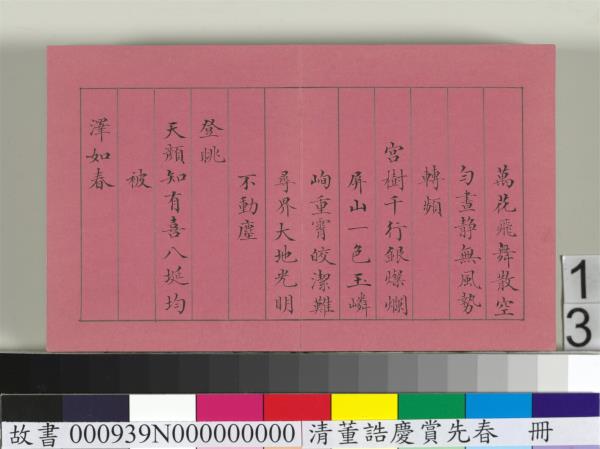 萬花飛舞散空
勻晝静無風勢
轉頻
宮樹千行銀燦爛
屏山一色玉嶙
峋重霄皎潔難
尋界大地光明
不動塵
登眺
天顏知有喜八埏均
被
澤如春
13
故書 000939N000000000 清董誥慶賞先春 冊